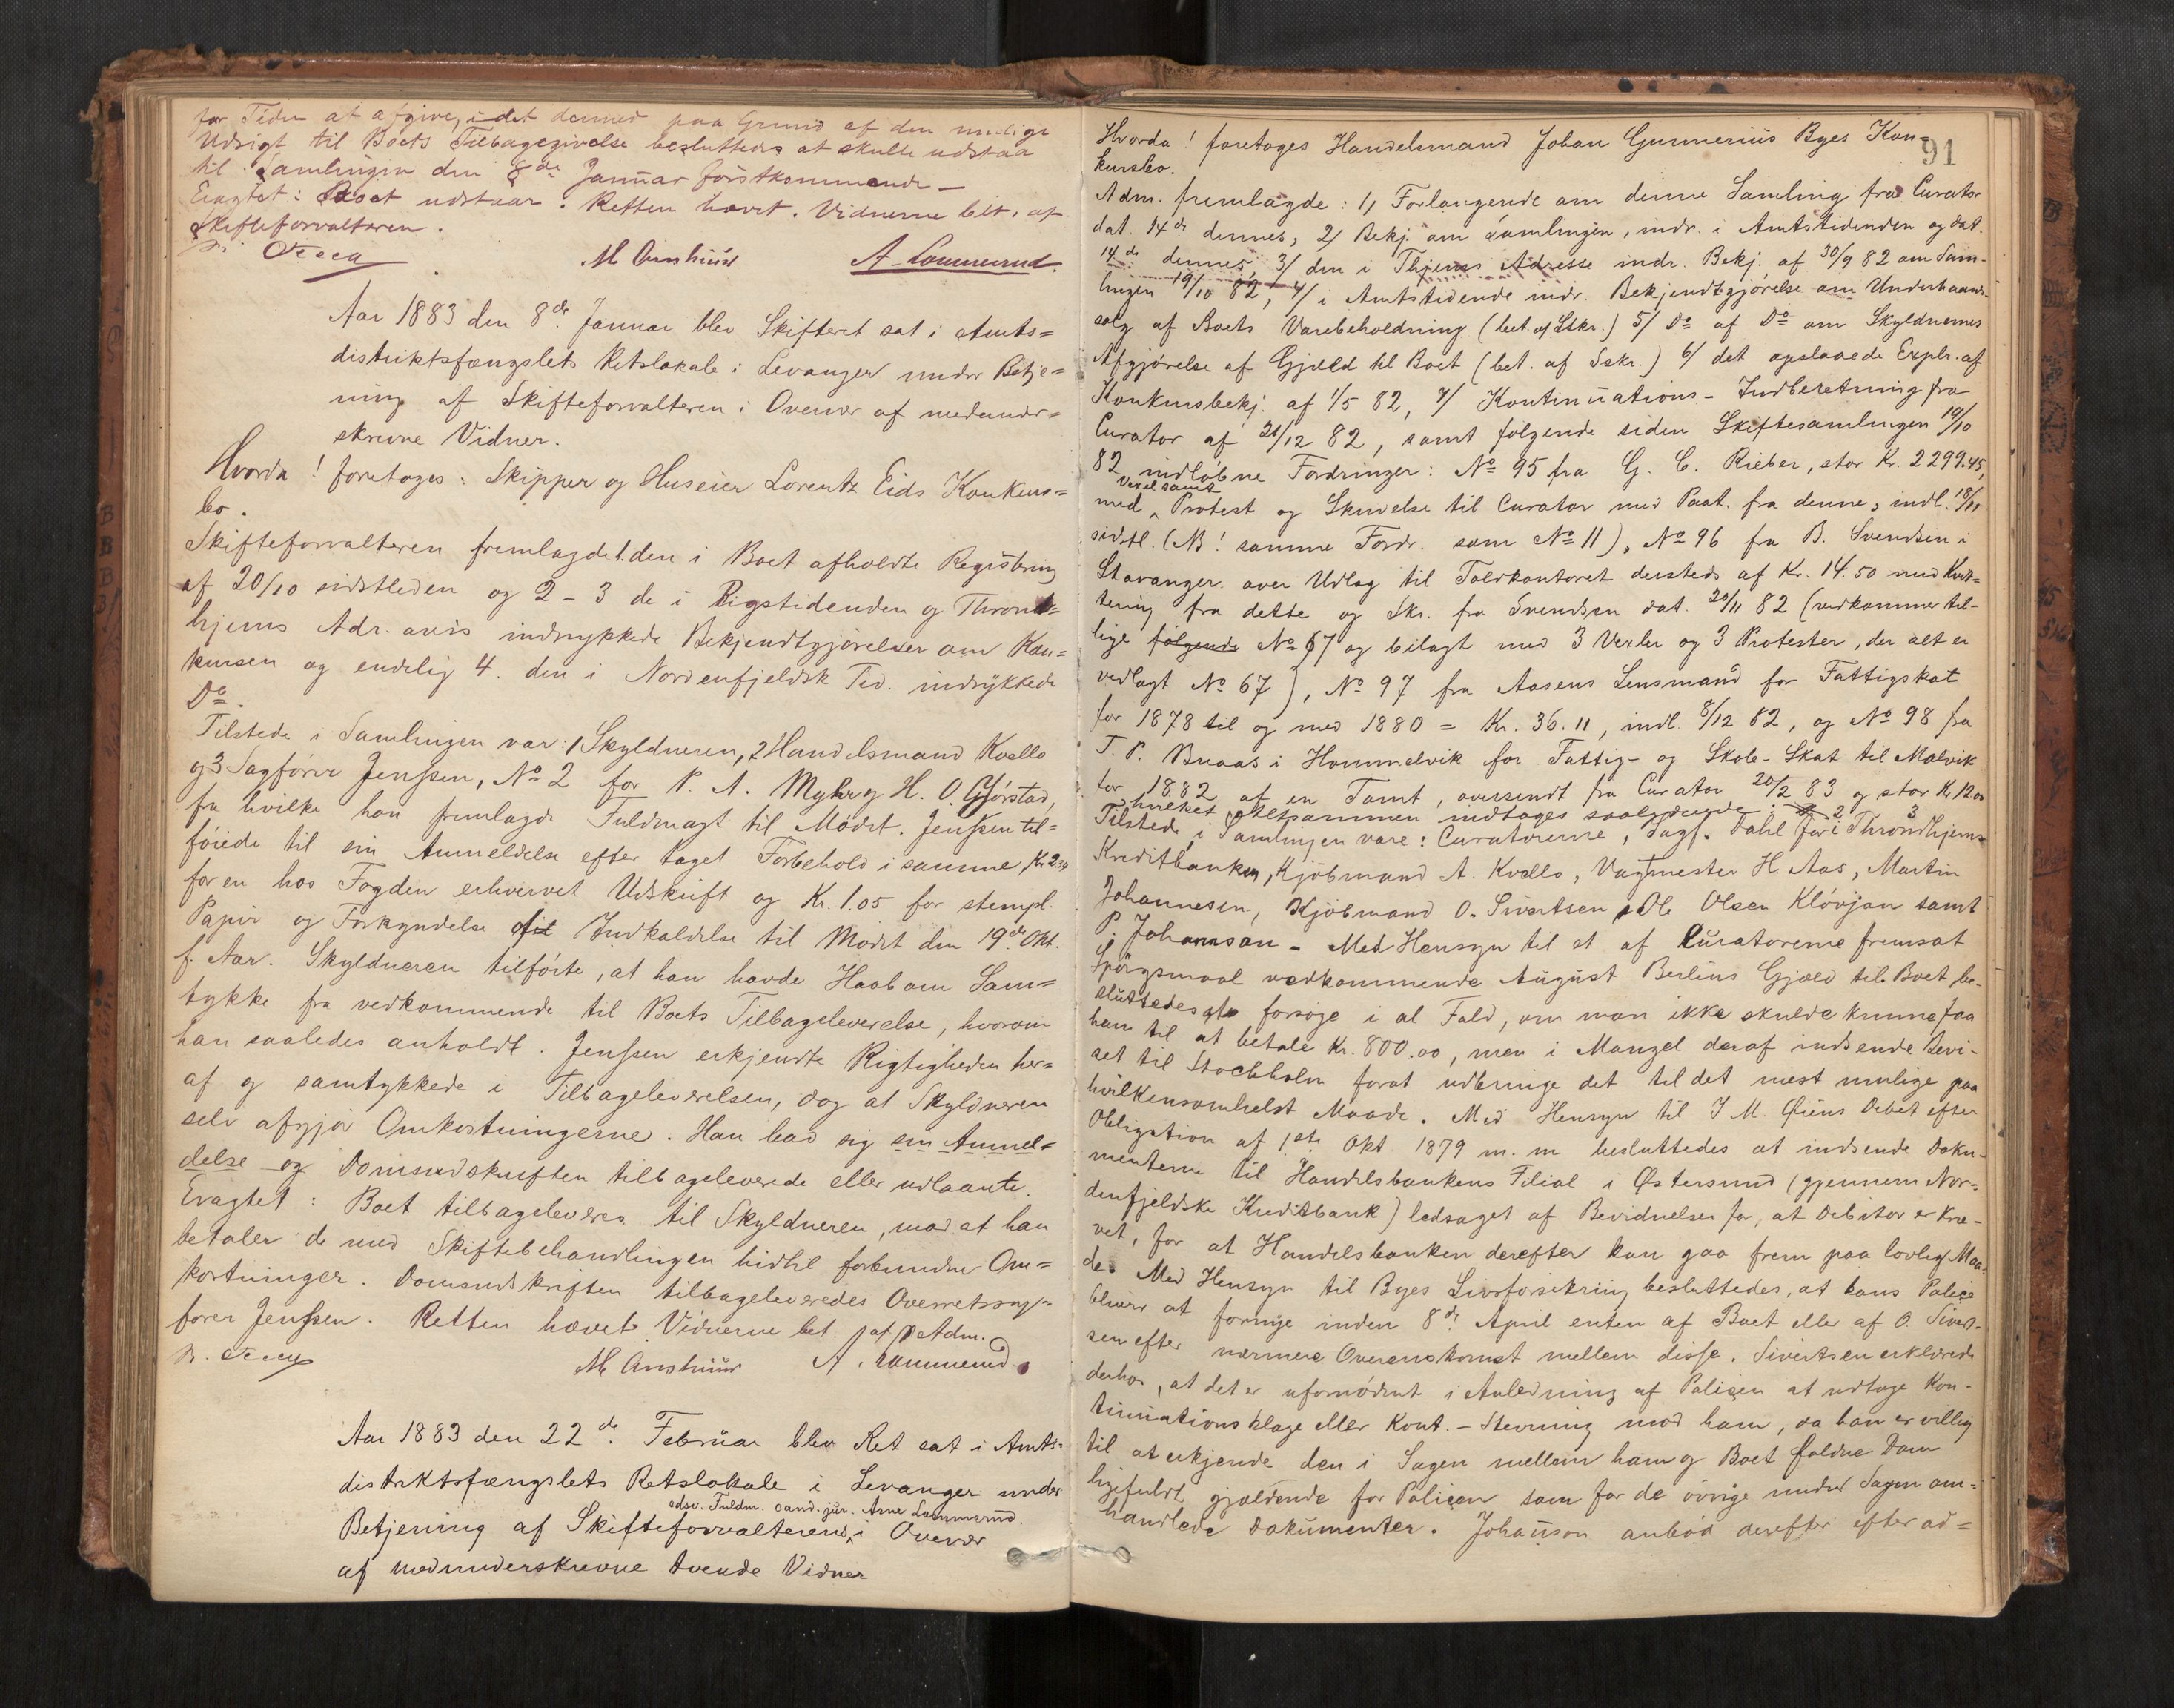 for Tiden at afgive, idet dermed paa Grund af den mulige
Udsigt til Boets Tilbagegivelse besluttedes at skulle udstaa
til Samlingen den 8de Januar førstkommende –
Eragtet: Boet udstaar. Retten hævet. Vidnerne bet. af
Skifteforvalteren.
M Arnhuus A. Lommerud.
Aar 1883 den 8de Januar blev Skifteret sat i Amts=
distriktsfængslets Retslokale i Levanger under Betje=
ning af Skifteforvalteren i Overvær af medunder=
skrevne Vidner.
Hvorda! foretoges: Skipper og Huseier Lorentz Eids Konkurs=
bo.
Skifteforvalteren fremlagde 1. den i Boet afholdte Registrering
af 20/10 sidstleden og 2–3 de i Rigstidenden og Thrond=
hjems Adr. avis indrykkede Bekjendtgjørelser om Kon=
kursen og endelig 4. den i Nordenfjeldsk Tid. indrykkede
Do.
Tilstede i Samlingen var: 1 Skyldneren, 2 Handelsmand Kvello
og 3 Sagfører Jenssen, No 2 for P. A. Myhr og H. O. Gjørstad,
fra hvilke han fremlagde Fuldmagt til Mødet. Jenssen til=
føiede til sin Anmeldelse efter taget Forbehold i samme, Kr 2.30
for en hos Fogden erhvervet Udskrift og Kr. 1.05 for stempl.
Papir og Forkyndelse af Indkaldelse til Mødet den 19de Okt.
f. Aar. Skyldneren tilførte, at han havde Haab om Sam=
tykke fra vedkommende til Boets Tilbageleverelse, hvorom
han saaledes anholdt. Jenssen erkjendte Rigtigheden her=
af og samtykkede i Tilbageleverelsen, dog at Skyldneren
selv afgjør Omkostningerne. Han bad sig sin Anmel=
delse og Domsudskriften tilbageleverede eller udlaante.
Eragtet: Boet tilbageleveres til Skyldneren, mod at han
betaler de med Skiftebehandlingen hidtil forbundne Om=
kostninger. Domsudskriften tilbageleveredes Overretssag=
fører Jenssen. Retten hævet. Vidnerne bet. af Adm.
M Arnhuus A. Lommerud.
Aar 1883 den 22de Februar blev Ret sat i Amts=
distriktsfængslets Retslokale i Levanger under
edsv. Fuldm. cand. jur. Arne Lommerud.
Betjening af Skifteforvalterens i Overvær
af medunderskrevne tvende Vidner
91
Hvorda! foretoges Handelsmand Johan Gunnerius Byes Kon=
kursbo.
Adm. fremlagde: 1) Forlangende om denne Samling fra Curator
dat. 14de dennes, 2/ Bekj. om Samlingen, indr. i Amtstidenden og dat.
14de dennes, 3/ den i Thjems Adresse indr. Bekj. af 30/9 82 om Sam-
lingen 19/10 82, 4/ i Amtstidende indr. Bekjendtgjørelse om Underhaands-
salg af Boets Varebeholdning (bet. af Sskr.) 5/ Do af Do om Skyldnernes
Afgjørelse af Gjæld til Boet (bet. af Sskr.) 6/ det opslaaede Explr. af
Konkursbekj. af 1/5 82, 7/ Kontinuations-Indberetning fra
Curator af 21/12 82, samt følgende siden Skiftesamlingen 19/10
82 indløbne Fordringer: No 95 fra G. C. Rieber, stor Kr. 2299.45,
Vexel samt
med Protest og Skrivelse til Curator med Paat. fra denne, indl. 18/11
sidstl. (NB! samme Fordr. som No 11), No 96 fra B. Svendsen i
Stavanger over Udlag til Toldkontoret dersteds af Kr. 14.50 med Kvit=
tering fra dette og Skr. fra Svendsen dat. 20/11 82 (vedkommer til-
lige følgende No 67 og bilagt med 3 Vexler og 3 Protester, der alt er
vedlagt No 67), No 97 fra Aasens Lensmand for Fattigskat
for 1878 til og med 1880 = Kr. 36.11, indl. 8/12 82, og No 98 fra
T. P. Bruaas i Hommelvik for Fattig- og Skole-Skat til Malvik
for 1882 af en Tomt, oversendt fra Curator 20/2 83 og stor Kr 12.00
hvilket altsammen indtages saalydende:
Tilstede i Samlingen vare: Curatorerne, Sagf. Dahl for Throndhjems
Kreditbanken, Kjøbmand A. Kvello, Vagtmester H. Aas, Martin
Johannesen, Kjøbmand O. Sivertsen, Ole Olsen Kløvjan samt
P. Johannson – Med Hensyn til et af Curatorerne fremsat
Spørgsmaal vedkommende August Berlins Gjæld til Boet be-
sluttedes at forsøge i al Fald, om man ikke skulde kunne faa
ham til at betale Kr. 800.00, men i Mangel deraf indsende Bevi-
set til Stockholm forat udbringe det til det mest mulige paa
hvilkensomhelst Maade. Med Hensyn til J M. Øiens Debet efter
Obligation af 1ste Okt 1879 m. m besluttedes at indsende Doku-
menterne til Handelsbankens Filial i Østersund (gjennem Nor-
denfjeldske Kreditbank) ledsaget af Bevidnelser for, at Debitor er kræ-
vet, for at Handelsbanken derefter kan gaa frem paa lovlig Maa-
de. Med Hensyn til Byes Livsforsikring besluttedes, at hans Police
bliver at fornye inden 8de April enten af Boet eller af O. Sivert-
sen efter nærmere Overenskomst mellem disse. Sivertsen erklærede
derhos, at det er ufornødent i Anledning af Policen at udtage Kon-
tinuationsklage eller Kont.-Stevning mod ham, da han er villig
til at erkjende den i Sagen mellem ham og Boet faldne Dom
ligefuldt gjældende for Policen som for de øvrige under Sagen om=
handlede Dokumenter. Johanson anbød derefter efter ad=